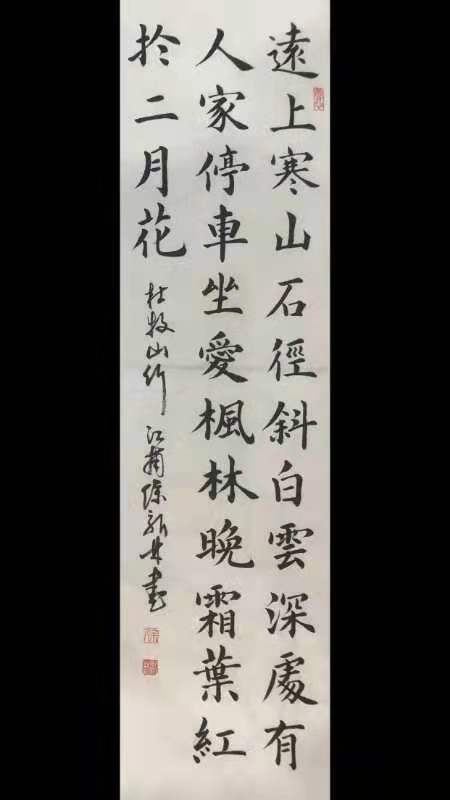 遠上寒山石徑斜白雲深處有
人家停車坐愛楓林晚霜葉紅
於二月花
杜牧山行 江南徐新
書